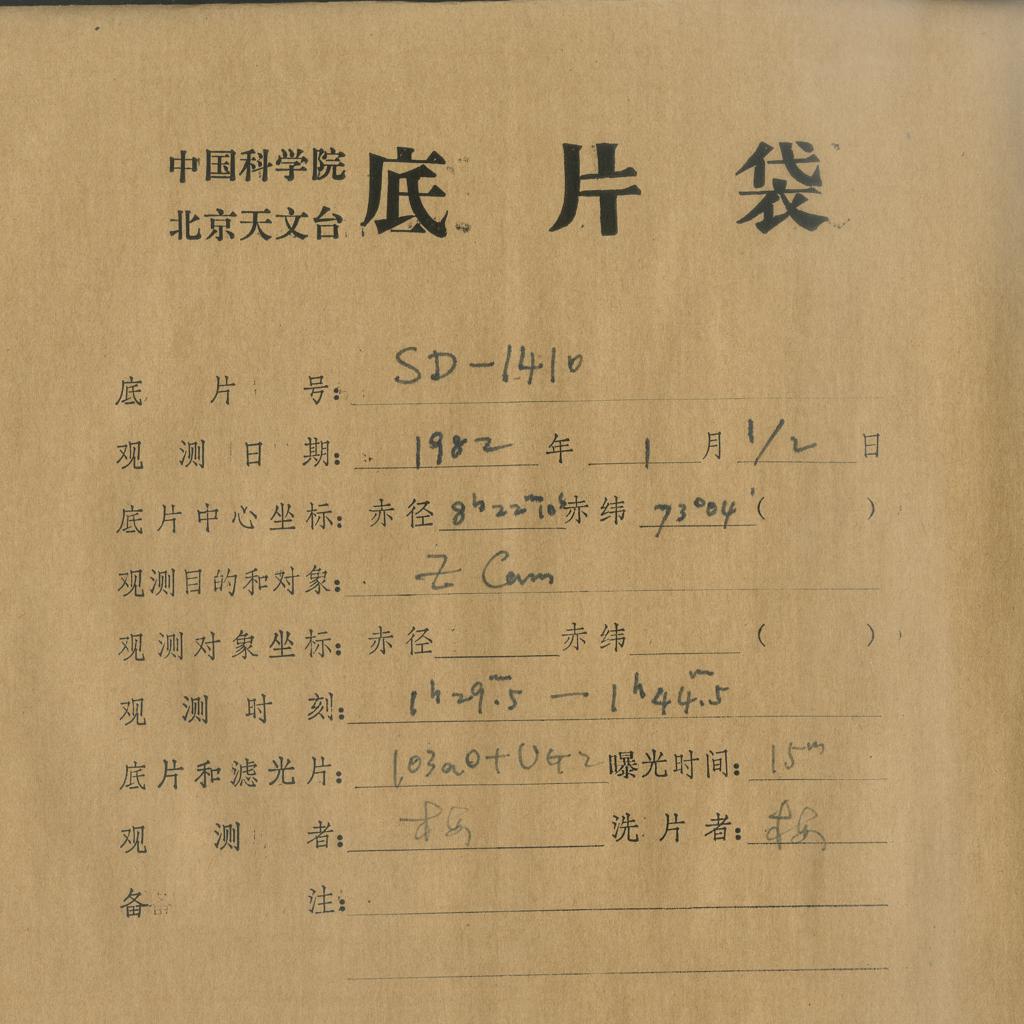 中国科学院
北京天文台
底片袋
底片号: SD-1410
观测日期: 1982年1月1/2日
底片中心坐标: 赤径 8h22m10s 赤纬 73°04' ( )
观测目的和对象: Z Cam
观测对象坐标: 赤径 赤纬 ( )
观测时刻: 1h29m.5 — 1h44m.5
底片和滤光片: 103aO+UG2 曝光时间: 15m
观测者: 梅 洗片者: 梅
备注: